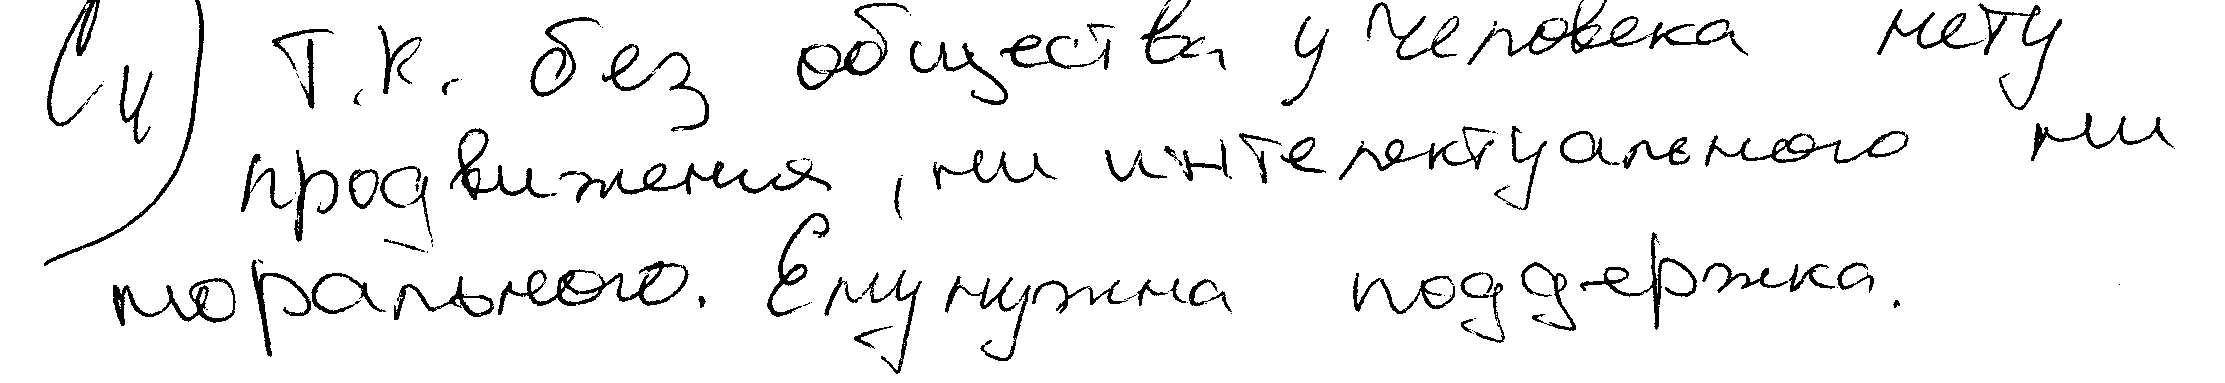 С4) Т.к. без общества у человека нету
продвижения, ни интелектуального ни
морального. Ему нужна поддержка.